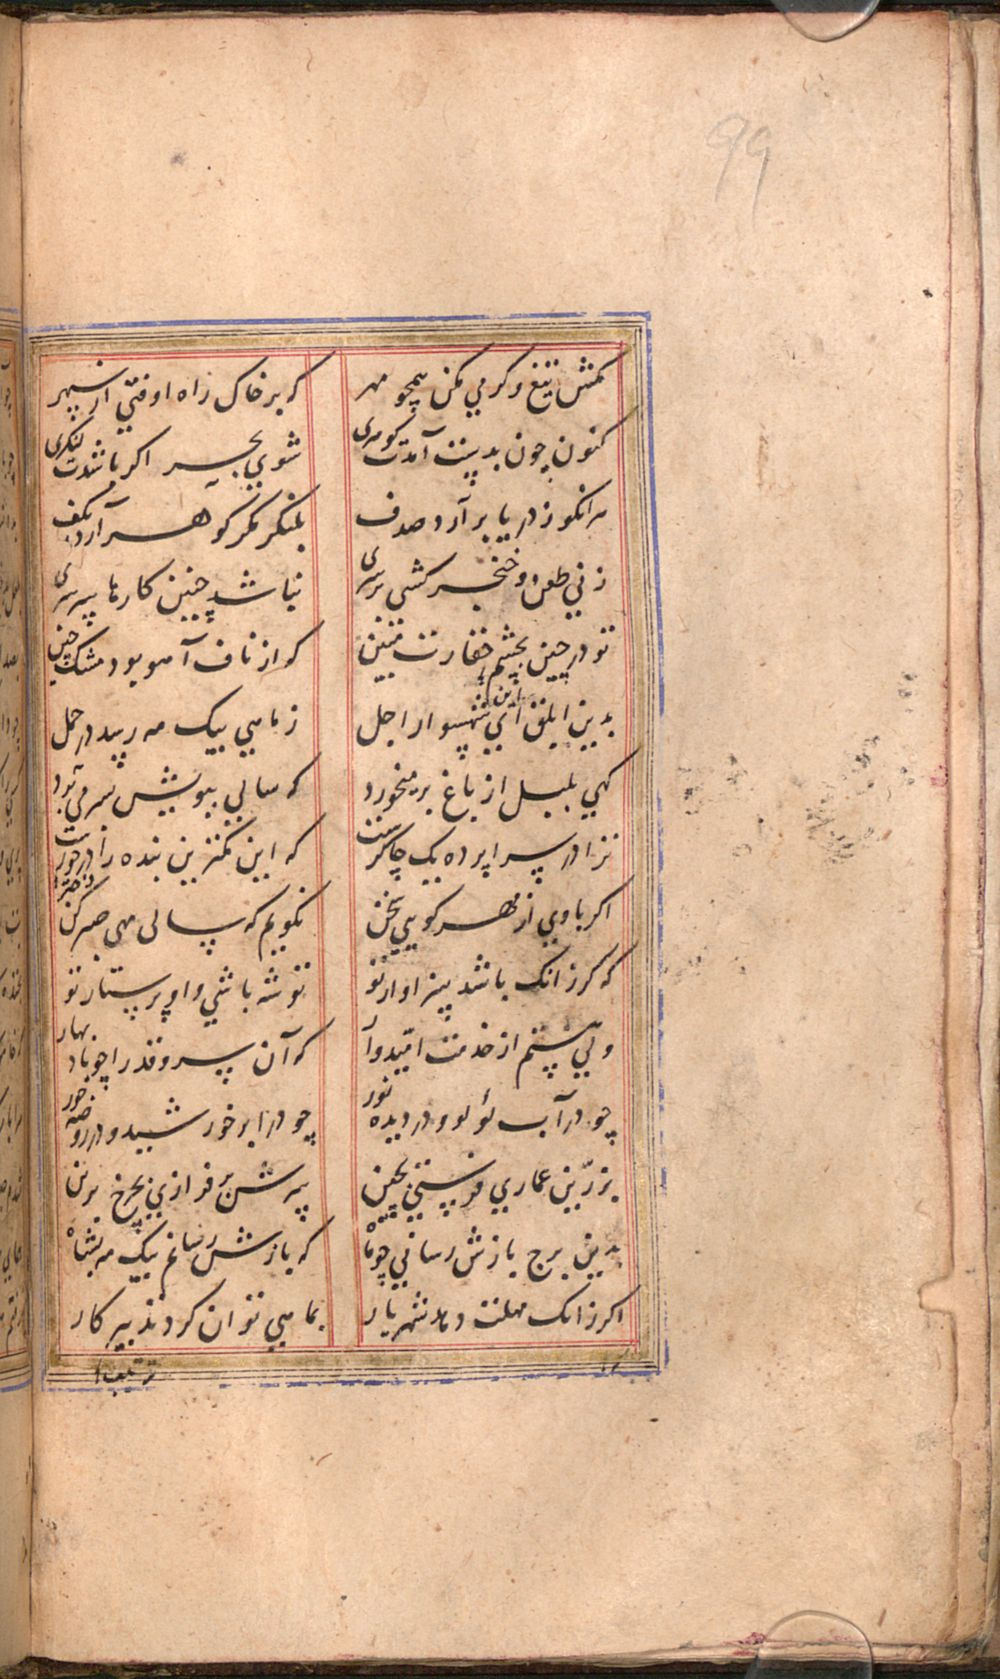 99
مکش تیغ و کرمي مکن همچو مهر
که بر خاک راه اوفتي از سپهر
کنون چون بدستت آمدت کوهری
شوي بحر اکر باشدت لنکری
نه انکو ز دریا برآرد صدف
بلنکر مکر کوهر آرد بکف
زني طعن و خنجر کشی بر سری
نباشد چنین کارها سرسری
تو در چین بچشم حقارت مبین
که از ناف آهو بود مشک چین
بدین ابلق اي شهسوار اجل
ز ماهي بیک مه رسد در حمل
کهي بلبل از باغ بر میخورد
که سالي ببویش بسر می برد
ترا در سراپرده یک چاکرست
که این کمترین بنده را در خورست
اکر با وي از مهر کویي سخن
نکویم که سالی مهی صبر کن
که کر زانک باشد سزاوار تو
تو شه باشي و او پرستار تو
ولي هستم از خدمت امیدوار
که آن سرو قد را چو باد بهار
چو در آب لؤلو و در دیده نور
چو در ابر خورشید و در روضه حور
بزرین عماري فرستي بچین
سرش بر فرازي بچرخ برین
بدین برج بازش رساني چو ماه
که بازش رسانم بیک مه بشاه
اکر زانک مهلت دهد شهریار
بماهي توان کرد تدبیر کار